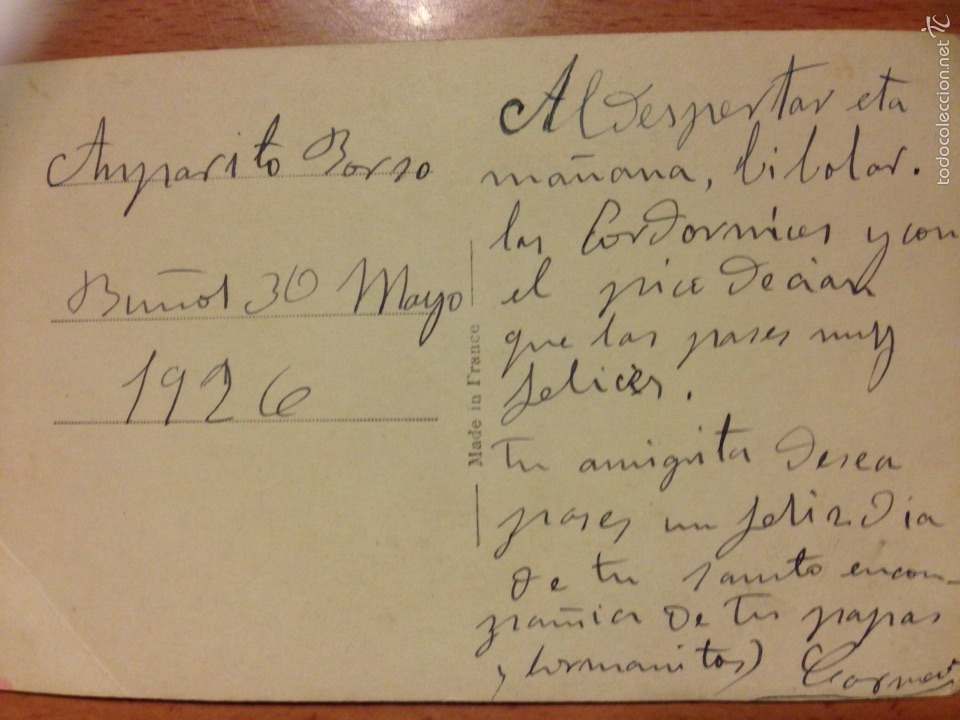 Amparito Borso
Buñol 30 Mayo
1926
Made in France
Al Despertar eta
mañana, bi bolar.
las Cordornices y con
el pico Decian
que las pases muy
felices.
Tu amigita Desea
pases un feliz Dia
de tu santo encom-
pañia De tus papas
y hermanitos)
todocoleccion.net